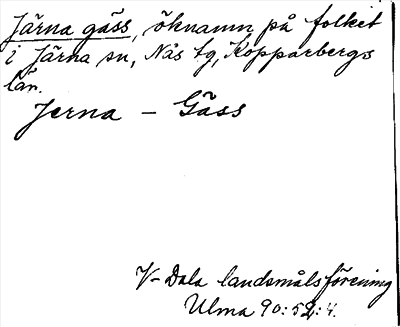 Järna gäss, öknamn på folket
i Järna sn, Nås tg, Kopparbergs
län.
Jerna – Gäss
V-Dala landsmålsförening
Ulma 90:52:4.